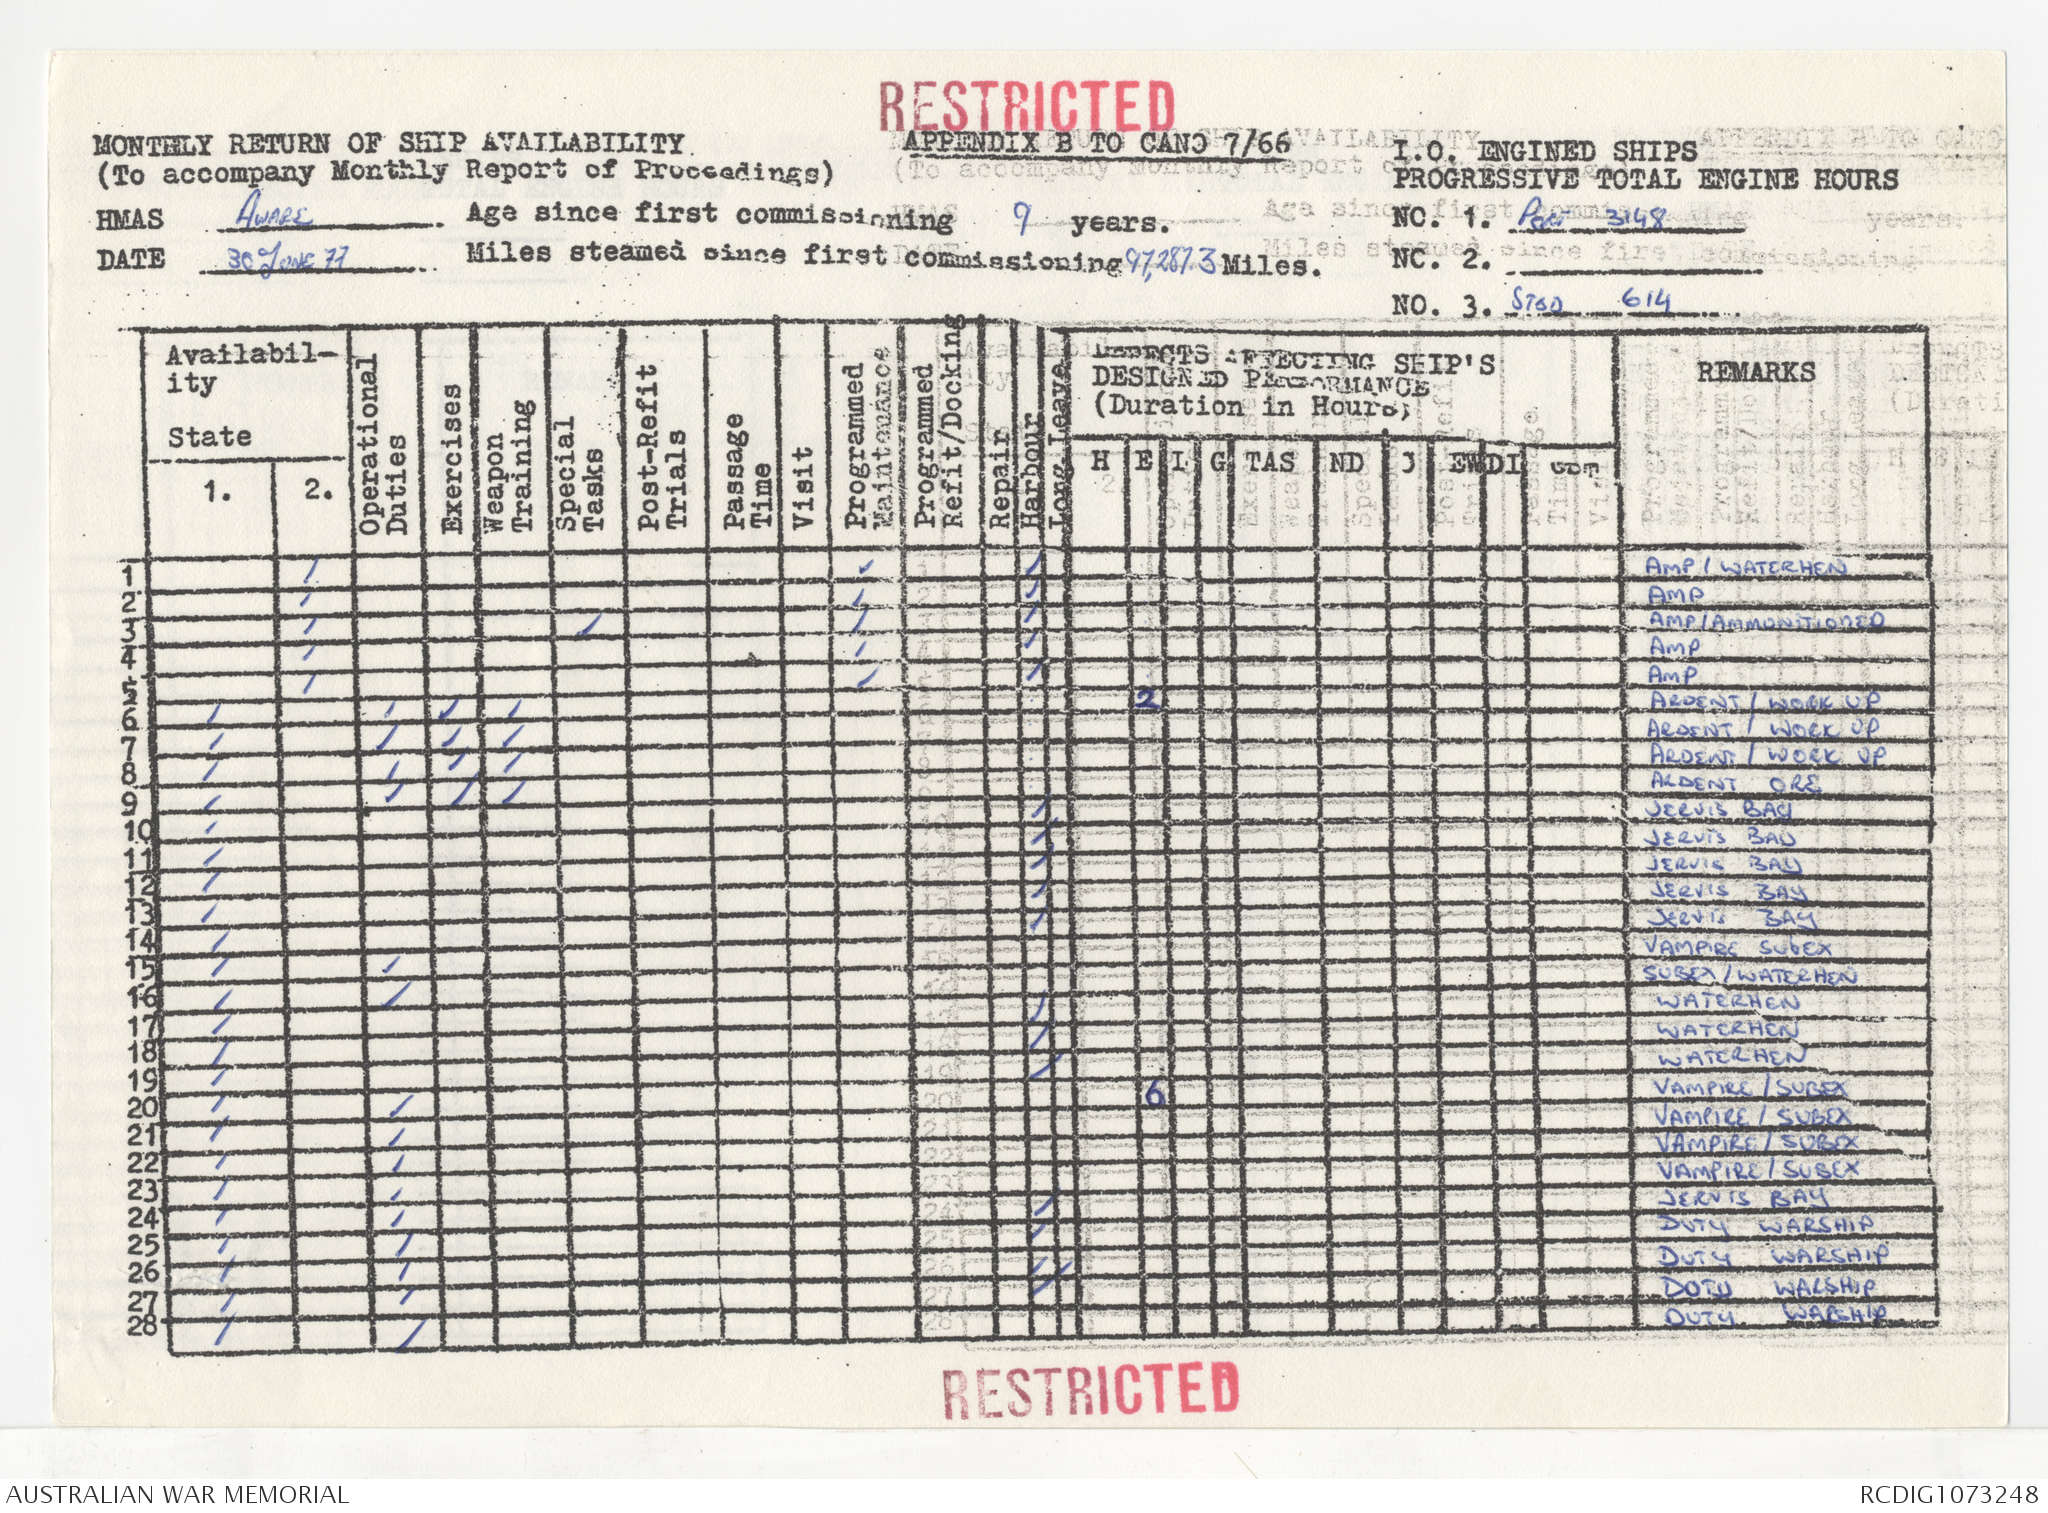 RESTRICTED
MONTHLY RETURN OF SHIP AVAILABILITY
APPENDIX B TO CANO 7/66
(To accompany Monthly Report of Proceedings)
I.O. ENGINED SHIPS
PROGRESSIVE TOTAL ENGINE HOURS
HMAS AWARE Age since first commissioning 9 years.
NO. 1. PORT 3148
DATE 30 JUNE 77 Miles steamed since first commissioning 97,287.3 Miles.
NO. 2.
NO. 3. STBD 614
Availabil-
ity
State
1. 2.
Operational Duties
Exercises
Weapon Training
Special Tasks
Post-Refit Trials
Passage Time
Visit
Programmed Maintenance
Programmed Refit/Docking
Repair
Harbour
Long Leave
DEFECTS AFFECTING SHIP'S
DESIGNED PERFORMANCE
(Duration in Hours)
H E I G TAS ND J EW DI
REMARKS
1 ✓ ✓ ✓ AMP/WATERHEN
2 ✓ ✓ ✓ AMP
3 ✓ ✓ ✓ ✓ AMP/AMMUNITIONED
4 ✓ ✓ ✓ AMP
5 ✓ ✓ ✓ AMP
6 ✓ ✓ ✓ ✓ 2 ARDENT/WORK UP
7 ✓ ✓ ✓ ✓ ARDENT/WORK UP
8 ✓ ✓ ✓ ✓ ARDENT/WORK UP
9 ✓ ✓ ✓ ✓ ARDENT ORE
10 ✓ ✓ JERVIS BAY
11 ✓ ✓ JERVIS BAY
12 ✓ ✓ JERVIS BAY
13 ✓ ✓ JERVIS BAY
14 ✓ ✓ JERVIS BAY
15 ✓ ✓ VAMPIRE SUBEX
16 ✓ ✓ SUBEX/WATERHEN
17 ✓ ✓ WATERHEN
18 ✓ ✓ WATERHEN
19 ✓ ✓ WATERHEN
20 ✓ ✓ 6 VAMPIRE/SUBEX
21 ✓ ✓ VAMPIRE/SUBEX
22 ✓ ✓ VAMPIRE/SUBEX
23 ✓ ✓ VAMPIRE/SUBEX
24 ✓ ✓ ✓ JERVIS BAY
25 ✓ ✓ ✓ DUTY WARSHIP
26 ✓ ✓ ✓ ✓ DUTY WARSHIP
27 ✓ ✓ ✓ DUTY WARSHIP
28 ✓ ✓ DUTY WARSHIP
RESTRICTED
AUSTRALIAN WAR MEMORIAL
RCDIG1073248